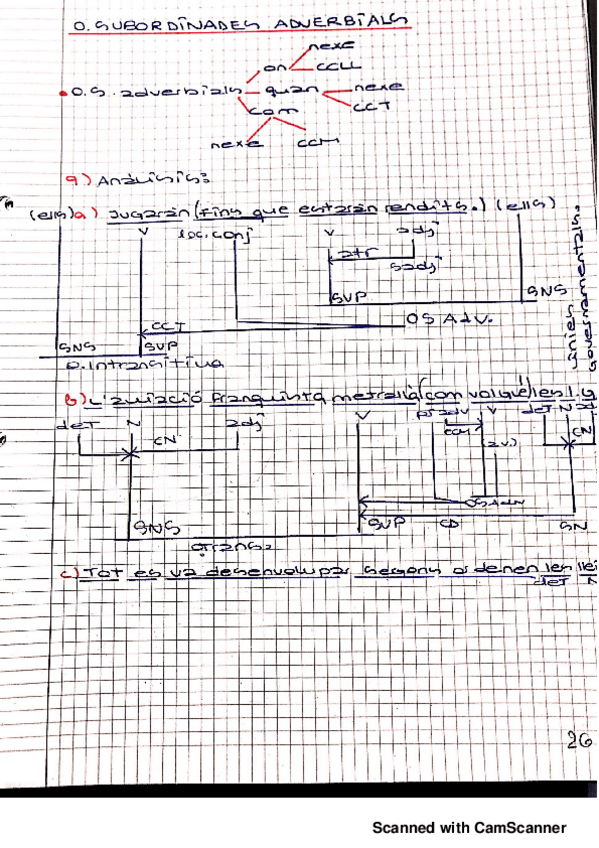 O. SUBORDINADES ADVERBIALS
nexe
on
CCLL
O.S. adverbials
quan
nexe
CCT
com
nexe
CCM
9) Anàlisis:
(ells) a) Jugaran (fins que estaran rendits.) (ells)
V
loc. conj
V
adj
atr
Sadj
SVP
SNS
CCT
OS Adv.
SNS
SVP
O. Intransitiva
línies governamentals.
b) L'aviació franquista metrallà (com volgué) les
det
N
adj
V
V
det
N
CN
CCM
CN
OS Adv
SNS
SVP
CD
SN
O trans.
c) Tot es va desenvolupar segons ordenen les
det
N
26
Scanned with CamScanner